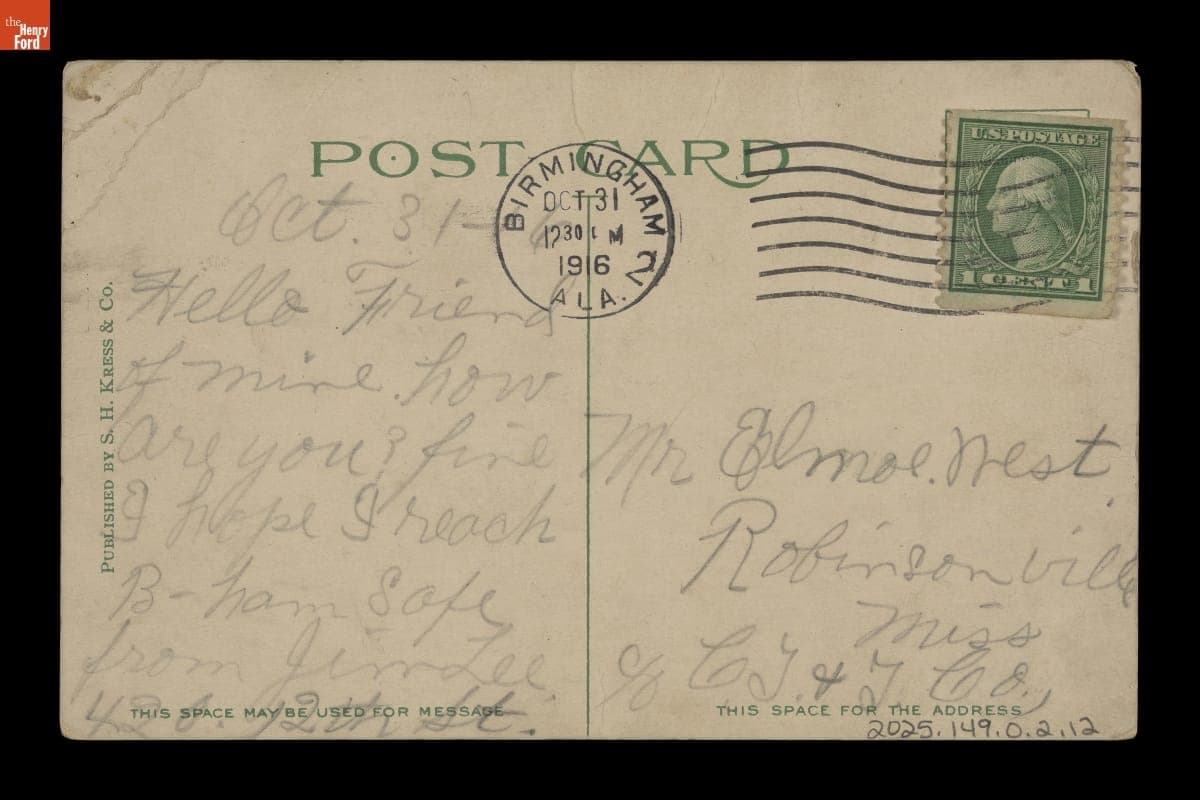 the
Henry
Ford
POST CARD
BIRMINGHAM
OCT 31
1230 M
1916
ALA.
2
U.S. POSTAGE
1 CENT 1
PUBLISHED BY S. H. KRESS & CO.
Oct. 31-
Hello Friend
of mine. how
are you? fine
I hope I reach
B-ham Safe
from Jim Lee.
12th St.
THIS SPACE MAY BE USED FOR MESSAGE
Mr Elmoe. West
Robinsonville
Miss
c/o C. & Co.,
THIS SPACE FOR THE ADDRESS
2025.149.0.2.12